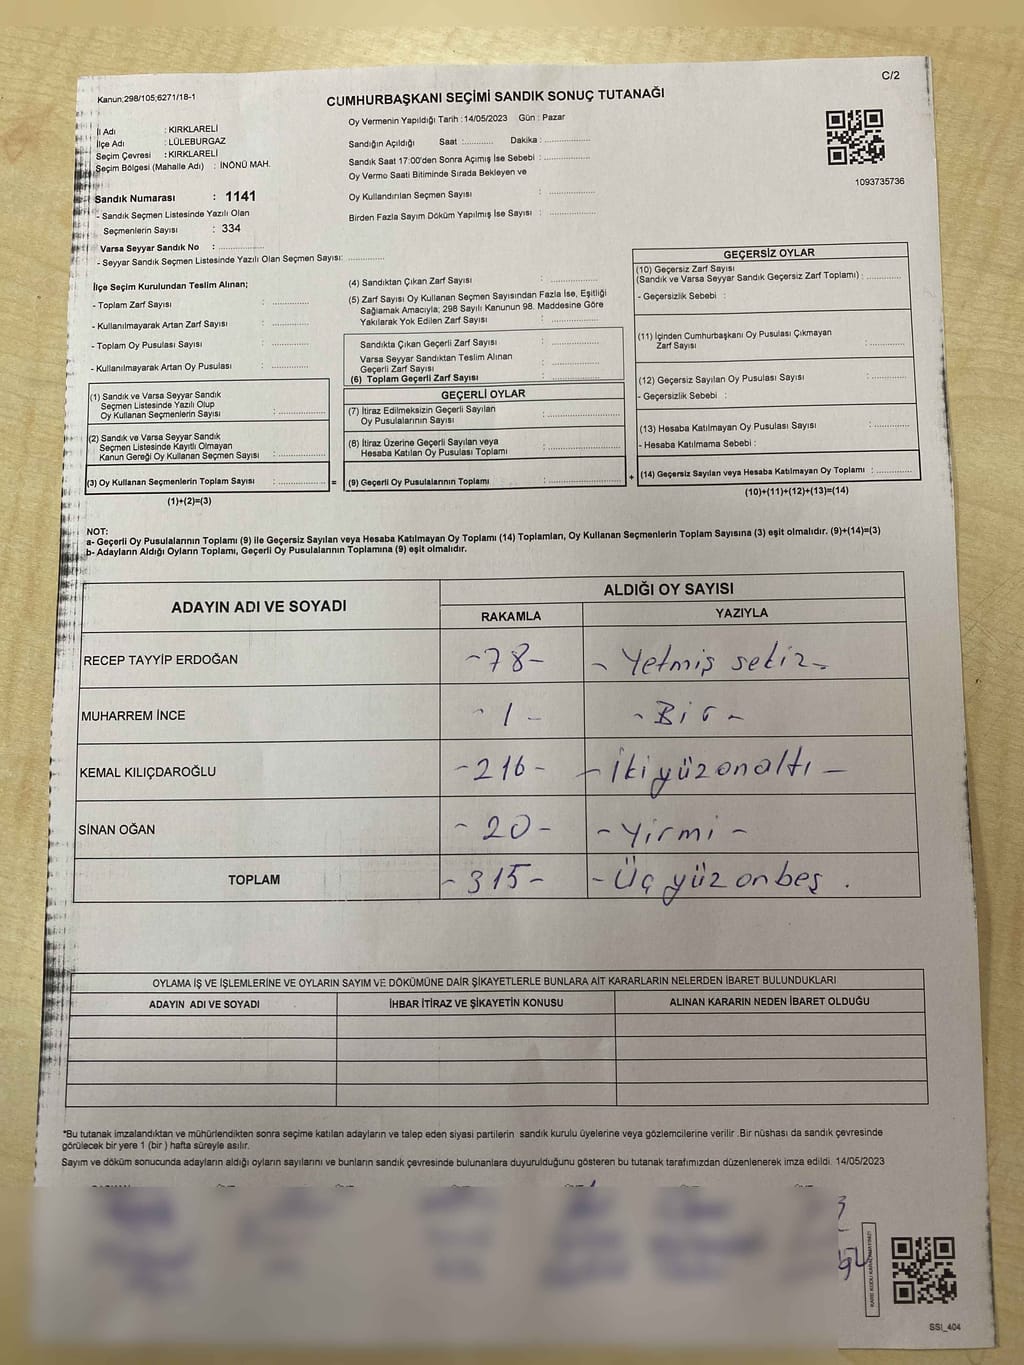 C/2
Kanun;298/105;6271/18-1
CUMHURBAŞKANI SEÇİMİ SANDIK SONUÇ TUTANAĞI
İl Adı : KIRKLARELİ
İlçe Adı : LÜLEBURGAZ
Seçim Çevresi : KIRKLARELİ
Seçim Bölgesi (Mahalle Adı) : İNÖNÜ MAH.
Sandık Numarası : 1141
- Sandık Seçmen Listesinde Yazılı Olan
Seçmenlerin Sayısı : 334
Varsa Seyyar Sandık No : ..............
- Seyyar Sandık Seçmen Listesinde Yazılı Olan Seçmen Sayısı: ............
Oy Vermenin Yapıldığı Tarih :14/05/2023 Gün : Pazar
Sandığın Açıldığı Saat :.......... Dakika : ..............
Sandık Saat 17:00'den Sonra Açımış İse Sebebi : ..............
Oy Vermo Saati Bitiminde Sırada Bekleyen ve
Oy Kullandırılan Seçmen Sayısı : ..............
Birden Fazla Sayım Döküm Yapılmış İse Sayısı : ..............
1093735736
İlçe Seçim Kurulundan Teslim Alınan;
- Toplam Zarf Sayısı : ............
- Kullanılmayarak Artan Zarf Sayısı : ............
- Toplam Oy Pusulası Sayısı : ............
- Kullanılmayarak Artan Oy Pusulası : ............
(1) Sandık ve Varsa Seyyar Sandık
Seçmen Listesinde Yazılı Olup
Oy Kullanan Seçmenlerin Sayısı : ..............
(2) Sandık ve Varsa Seyyar Sandık
Seçmen Listesinde Kayıtlı Olmayan
Kanun Gereği Oy Kullanan Seçmen Sayısı : ..............
(3) Oy Kullanan Seçmenlerin Toplam Sayısı : ..............
(1)+(2)=(3)
=
(4) Sandıktan Çıkan Zarf Sayısı : ..............
(5) Zarf Sayısı Oy Kullanan Seçmen Sayısından Fazla İse, Eşitliği
Sağlamak Amacıyla; 298 Sayılı Kanunun 98. Maddesine Göre
Yakılarak Yok Edilen Zarf Sayısı : ..............
Sandıkta Çıkan Geçerli Zarf Sayısı : ..............
Varsa Seyyar Sandıktan Teslim Alınan
Geçerli Zarf Sayısı : ..............
(6) Toplam Geçerli Zarf Sayısı : ..............
GEÇERLİ OYLAR
(7) İtiraz Edilmeksizin Geçerli Sayılan
Oy Pusulalarının Sayısı : ..............
(8) İtiraz Üzerine Geçerli Sayılan veya
Hesaba Katılan Oy Pusulası Toplamı : ..............
(9) Geçerli Oy Pusulalarının Toplamı : ..............
+
GEÇERSİZ OYLAR
(10) Geçersiz Zarf Sayısı
(Sandık ve Varsa Seyyar Sandık Geçersiz Zarf Toplamı) : ...........
- Geçersizlik Sebebi :
(11) İçinden Cumhurbaşkanı Oy Pusulası Çıkmayan
Zarf Sayısı : ...........
(12) Geçersiz Sayılan Oy Pusulası Sayısı : ...........
- Geçersizlik Sebebi :
(13) Hesaba Katılmayan Oy Pusulası Sayısı : ...........
- Hesaba Katılmama Sebebi :
(14) Geçersiz Sayılan veya Hesaba Katılmayan Oy Toplamı : ...........
(10)+(11)+(12)+(13)=(14)
NOT:
a- Geçerli Oy Pusulalarının Toplamı (9) ile Geçersiz Sayılan veya Hesaba Katılmayan Oy Toplamı (14) Toplamları, Oy Kullanan Seçmenlerin Toplam Sayısına (3) eşit olmalıdır. (9)+(14)=(3)
b- Adayların Aldığı Oyların Toplamı, Geçerli Oy Pusulalarının Toplamına (9) eşit olmalıdır.
ADAYIN ADI VE SOYADI
ALDIĞI OY SAYISI
RAKAMLA YAZIYLA
RECEP TAYYİP ERDOĞAN -78- - Yetmiş sekiz -
MUHARREM İNCE - 1 - - Bir -
KEMAL KILIÇDAROĞLU -216- - İkiyüzonaltı -
SİNAN OĞAN - 20 - - Yirmi -
TOPLAM -315- - Üçyüzonbeş .
OYLAMA İŞ VE İŞLEMLERİNE VE OYLARIN SAYIM VE DÖKÜMÜNE DAİR ŞİKAYETLERLE BUNLARA AİT KARARLARIN NELERDEN İBARET BULUNDUKLARI
ADAYIN ADI VE SOYADI İHBAR İTİRAZ VE ŞİKAYETİN KONUSU ALINAN KARARIN NEDEN İBARET OLDUĞU
*Bu tutanak imzalandıktan ve mühürlendikten sonra seçime katılan adayların ve talep eden siyasi partilerin sandık kurulu üyelerine veya gözlemcilerine verilir .Bir nüshası da sandık çevresinde
görülecek bir yere 1 (bir ) hafta süreyle asılır.
Sayım ve döküm sonucunda adayların aldığı oyların sayılarını ve bunların sandık çevresinde bulunanlara duyurulduğunu gösteren bu tutanak tarafımızdan düzenlenerek imza edildi. 14/05/2023
SSI_404